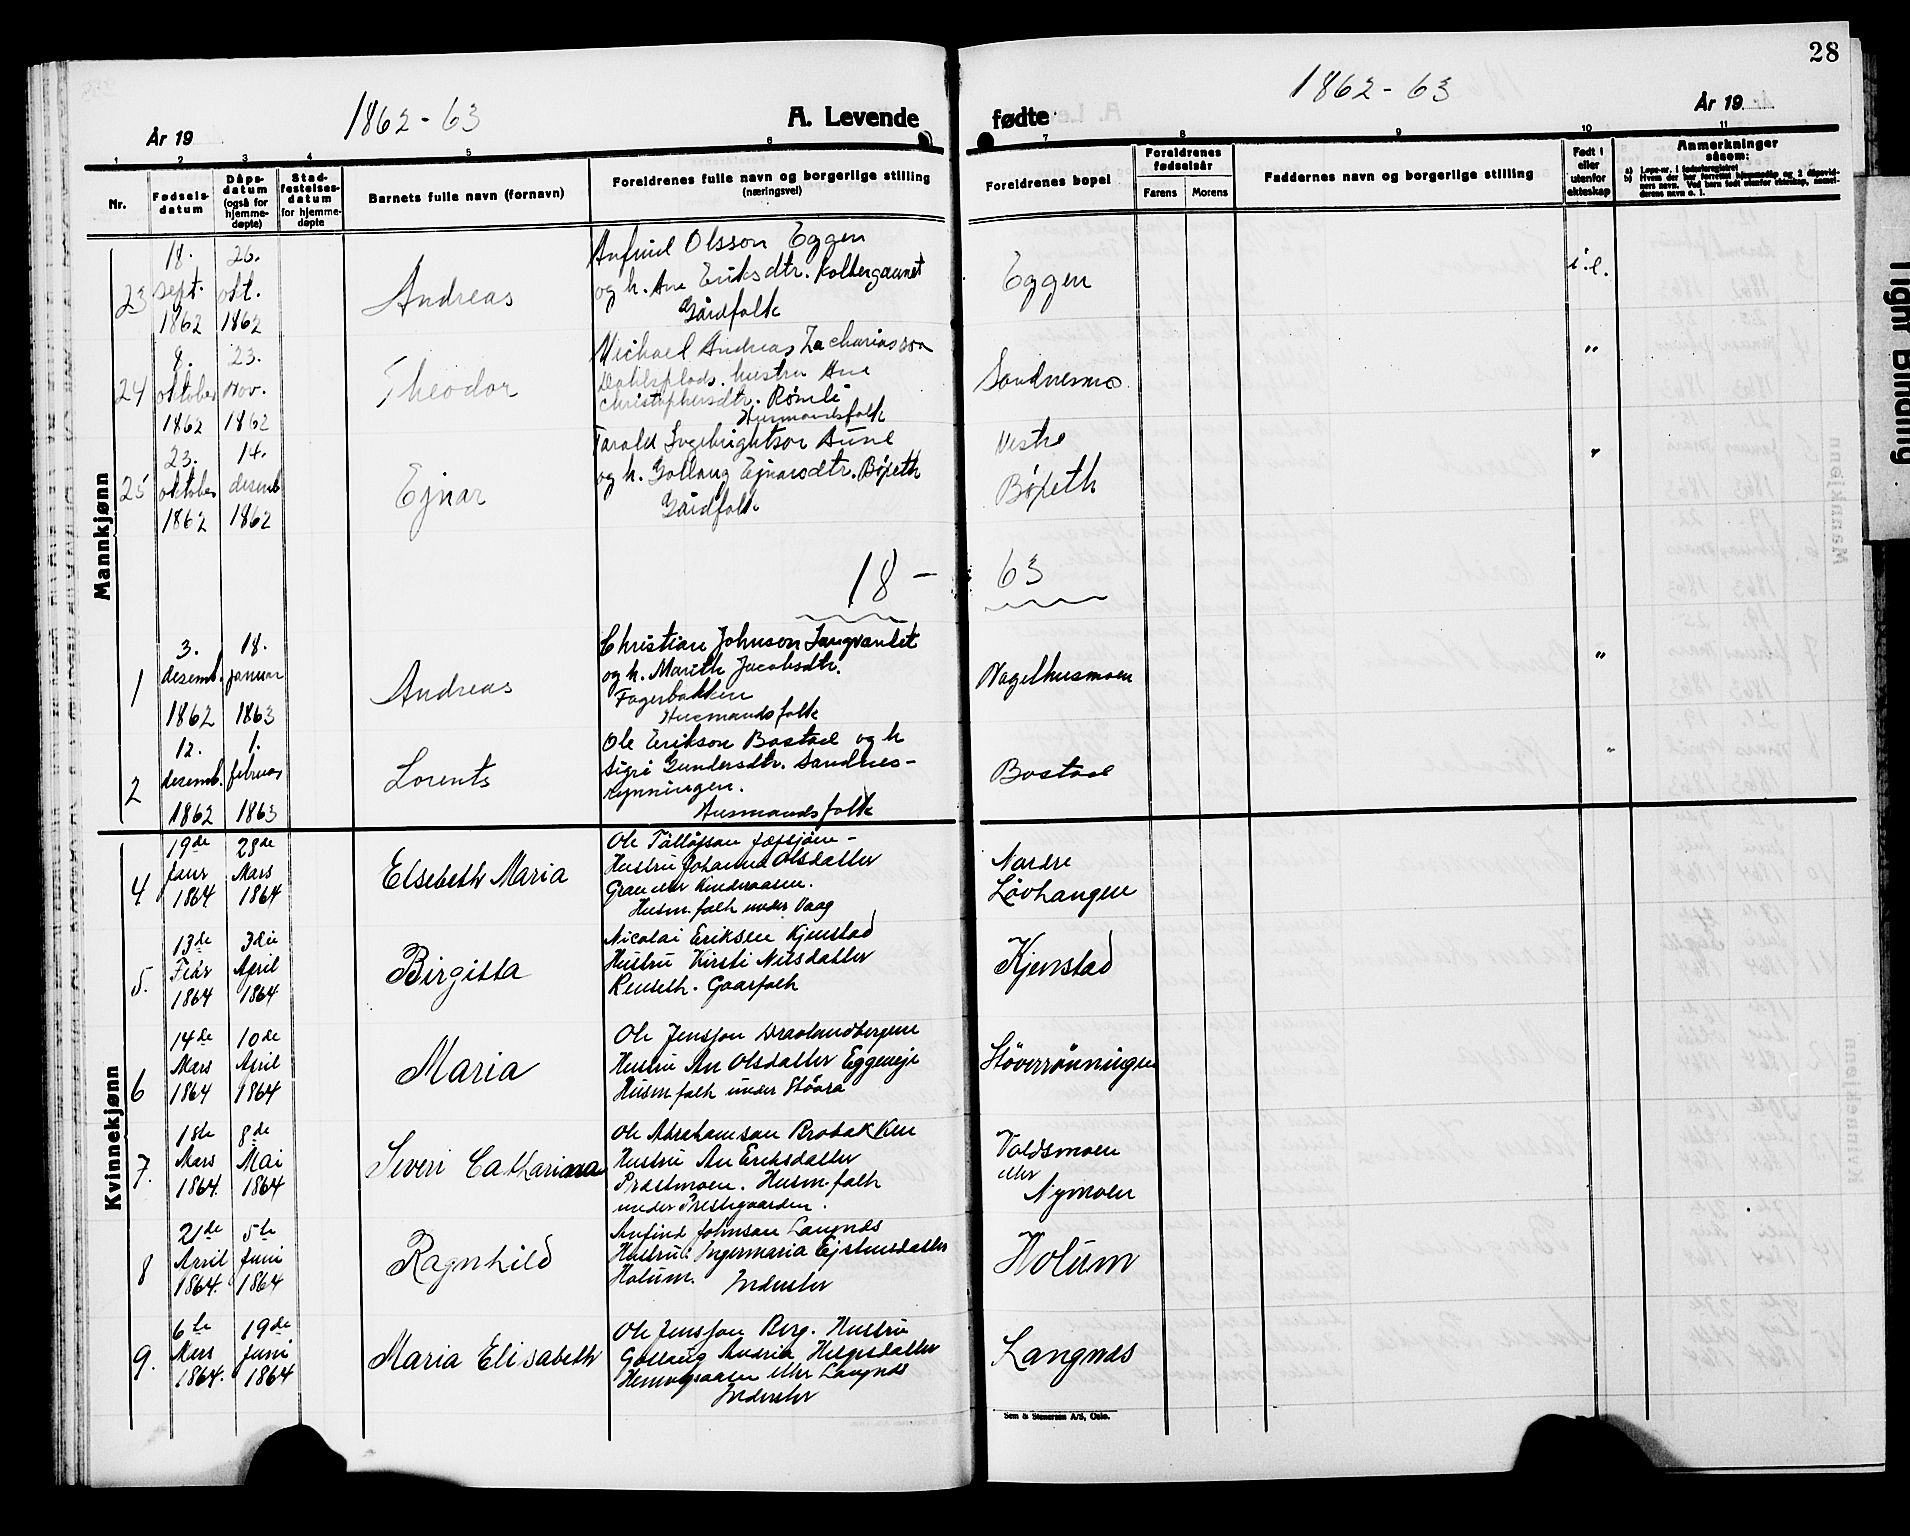 28
1862-63
1862-63
År 19
A. Levende
fødte
År 19
1 2 3 4 5 6 7 8 9 10 11
Nr.
Fødsels-
datum
Dåps-
datum
(også for
hjemme-
døpte)
Stad-
festelses-
datum
for hjemme-
døpte
Barnets fulle navn (fornavn)
Foreldrenes fulle navn og borgerlige stilling
(næringsvei)
Foreldrenes bopel
Foreldrenes
fødselsår
Farens
Morens
Faddernes navn og borgerlige stilling
Født i
eller
utenfor
ekteskap
Anmerkninger
såsom:
Mannkjønn
23
18.
sept.
1862
26.
okt.
1862
Andreas
Anfind Olsson Eggen
og h. Ane Eriksdtr. Kolbergaunet
Gårdfolk
Eggen
i.e.
24
8.
oktober
1862
23.
nov.
1862
Theodor
Michael Andreas Zachariasson
Dahlsplads. hustru Ane
Christophersdtr. Rømli
Husmandsfolk
Sandnesmo
"
25
23.
oktober
1862
14.
desemb
1862
Ejnar
Tarald Ingebrightson Aune
og h. Gollaug Ejnarsdtr. Bøpeth
Gårdfolk
Vestre
Bøpeth
"
18- 63
1
3.
desemb.
1862
18.
januar
1863
Andreas
Christian Johnson Langvandet
og h. Marith Jacobsdtr.
Fagerbakken
Husmandsfolk
Nagelhusmoen
"
2
12.
desemb.
1862
1.
februar
1863
Lorents
Ole Erikson Bostad og h
Sigri Gundersdtr. Sandnes-
rynningen.
Husmandsfolk
Bostad
"
Kvinnekjønn
4
19de
Janr
1864
28de
Mars
1864
Elsebeth Maria
Ole
Hustru Johanna Olsdatter
Husm.folk under Vaag
Nordre
Løvhaugen
5.
13de
Febr
1864
3die
April
1864
Birgitta
Nicolai Eriksen Kjenstad
Hustru Kirsti Nilsdatter
Renseth. Gaarfolk
Kjenstad
6
14de
Mars
1864
10de
April
1864
Maria
Ole Jensson Dravlandbergene
Hustru An Olsdatter Eggeneje
Husm folk under Støvra
Støverrønningen
7.
18te
Mars
1864.
8de
Mai
1864
Siveri Catharinaa
Ole Abrahamsen Brobakken
Hustru An Eriksdatter
Præstmoen. Husm folk
under Prestegaarden.
Voldsmoen
eller
Nymoen
8
21de
April
1864.
5te
Juni
1864
Ragnhild
Anfind Johnsen Langnes
Hustru: Ingermaria Ejstensdatter
Holum. Inderster
Holum
9.
6te
Mars
1864.
19de
Juni
1864
Maria Elisabeth
Ole Jensson Berg. Hustru
Gollaug Andria
eller Langnes
Inderster
Langnes
Sem & Stenersen A/S, Oslo.
Tight Binding